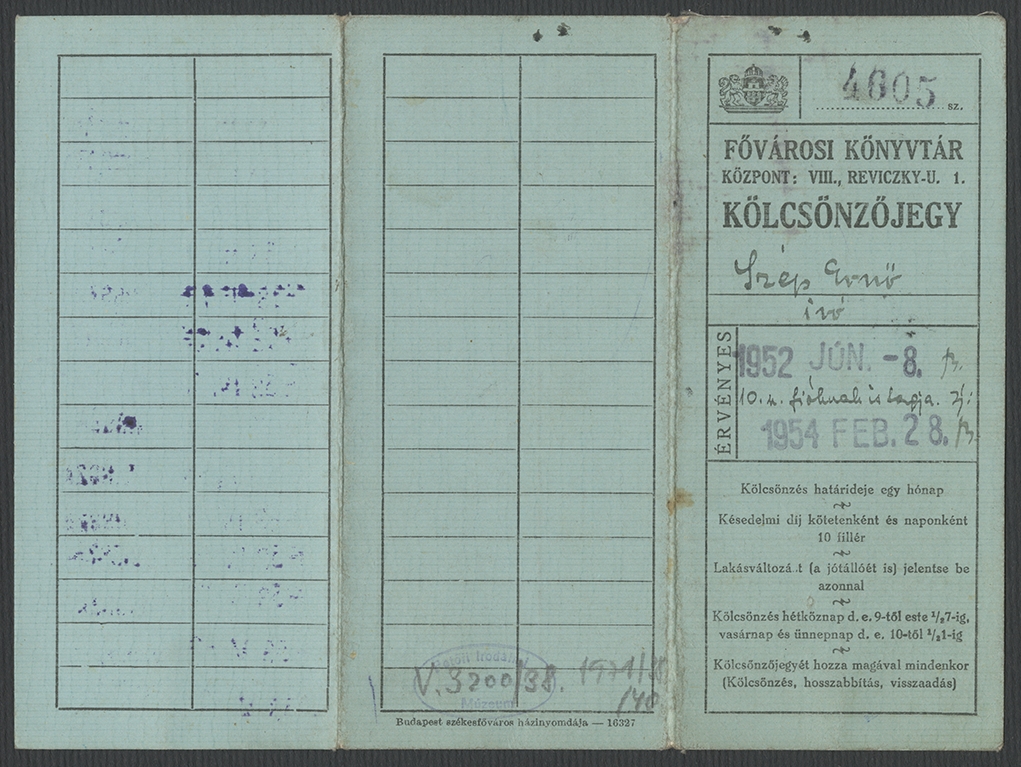 4605 sz.
FŐVÁROSI KÖNYVTÁR
KÖZPONT: VIII., REVICZKY-U. 1.
KÖLCSÖNZŐJEGY
Szép Ernő
író
ÉRVÉNYES
1952 JÚN. -8.
10. sz. fióknak is tagja.
1954 FEB. 28.
Kölcsönzés határideje egy hónap
Késedelmi díj kötetenként és naponként
10 fillér
Lakásváltozá.t (a jótállóét is) jelentse be
azonnal
Kölcsönzés hétköznap d. e. 9-től este 1/27-ig,
vasárnap és ünnepnap d. e. 10-től 1/21-ig
Kölcsönzőjegyét hozza magával mindenkor
(Kölcsönzés, hosszabbítás, visszaadás)
Petőfi Irodalmi
V. 3200/38.
Múzeum
Budapest székesfőváros házinyomdája — 16327